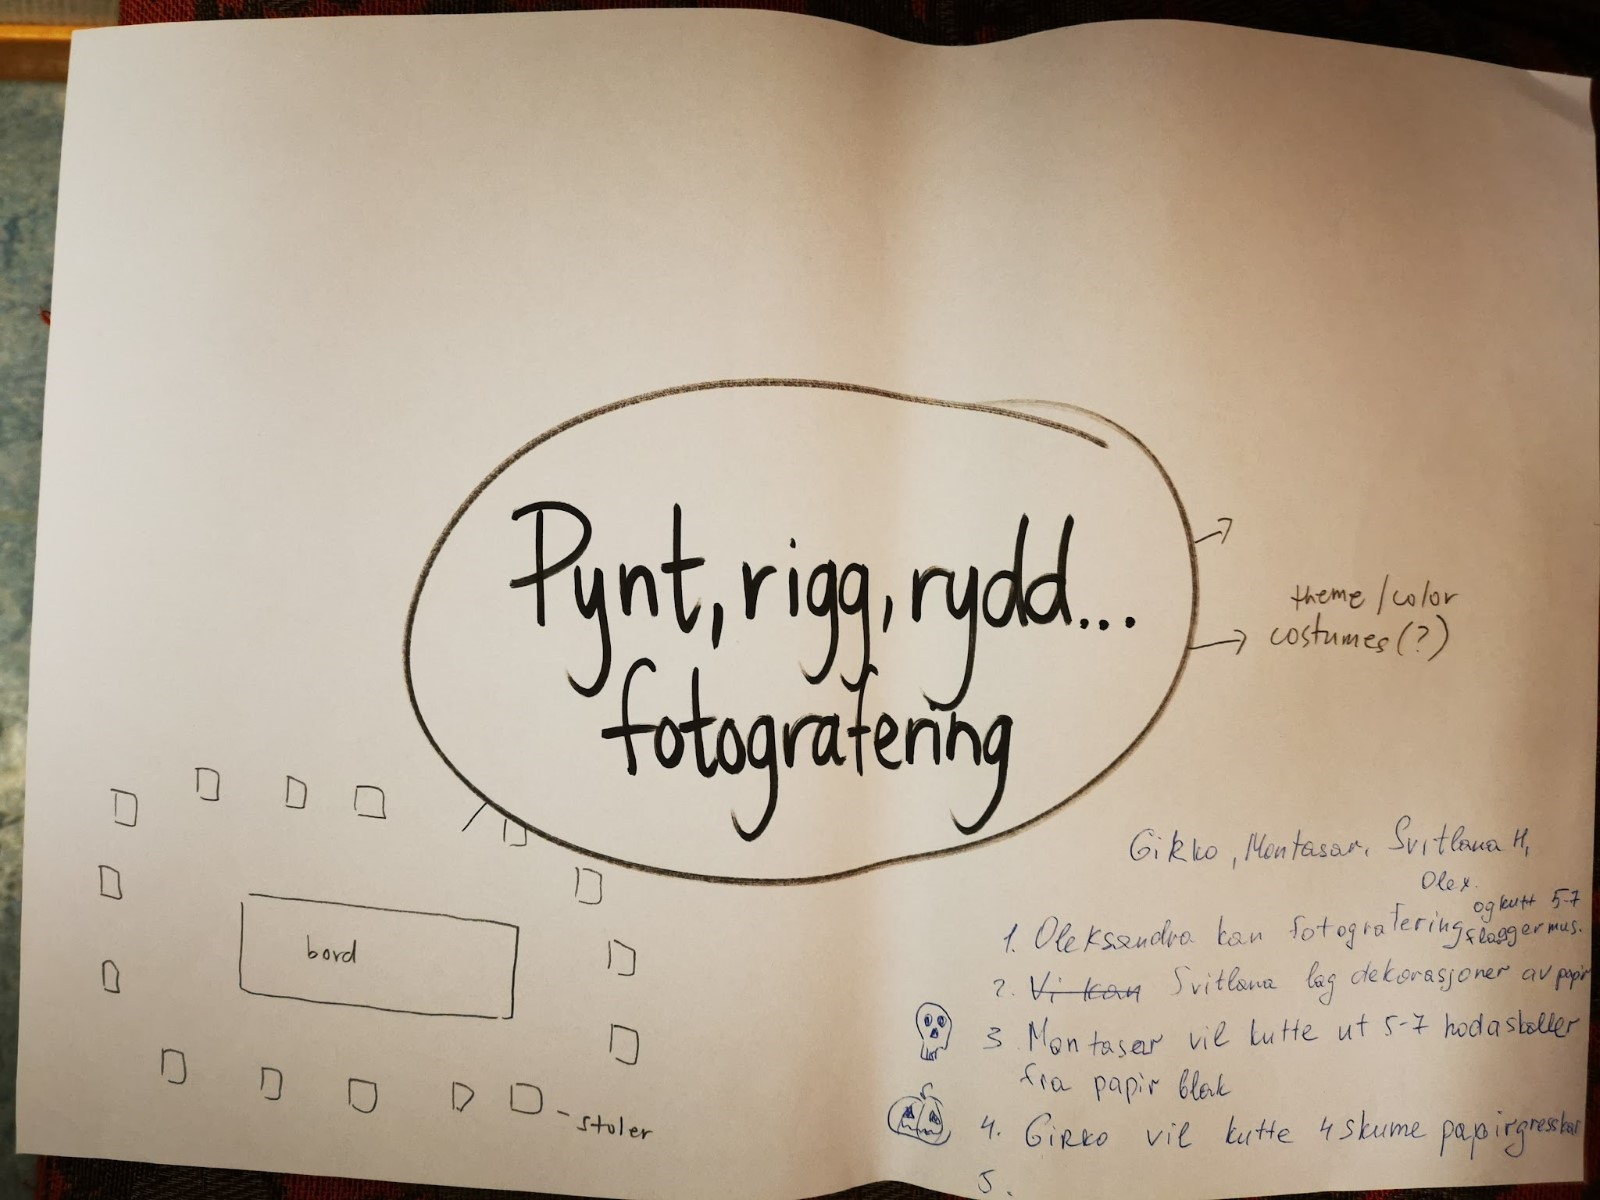 Pynt, rigg, rydd...
fotografering
theme/color
costumes(?)
bord
stoler
Girko, Montasar, Svitlana H,
Olex.
1. Oleksandra kan fotografering og kutt 5-7
flaggermus.
2. Vi kan Svitlana lag dekorasjoner av papir
3 Montasar vil kutte ut 5-7 hodaskaller
fra papir blok
4. Girko vil kutte 4 skume papirgresskar
5.